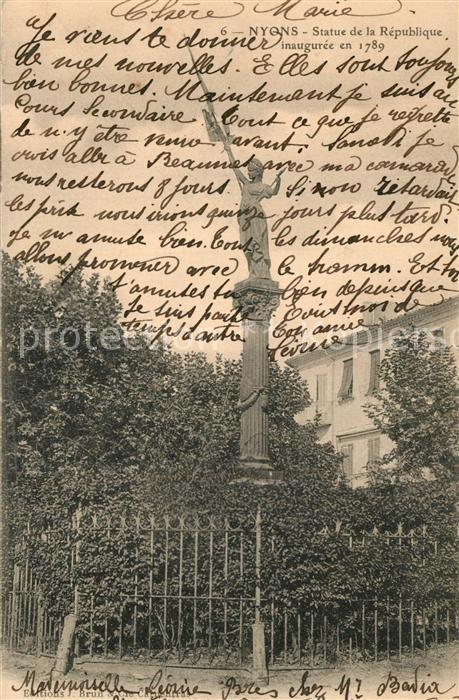 Chère Marie
6 — NYONS - Statue de la République
inaugurée en 1789
Je viens te donner
de mes nouvelles. Elles sont toujours
bien bonnes. Maintenant je suis au
Cours Secondaire tout ce que je regrette
de n'y être venue avant. Samedi je
crois aller à Beaumes avec ma camarade
nous resterons 8 jours. Si non retardait
les prix nous irions quinze jours plus tard.
Je m'amuse bien. Tout les dimanches nous
allons promener avec le tramm. Et toi
t'amuses tu bien depuis que
je suis partie Écris moi de
temps à autre. Ton amie
Léonie
Editions J. Brun & Cie Carpentras
Mademoiselle Léonie Brès chez Mr Badin